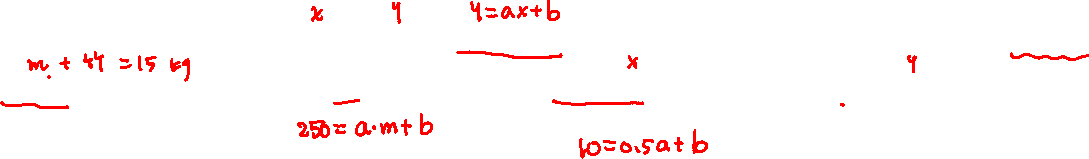 x y y=ax+b
m + 44 = 15 kg x y
250 = a·m+b
10=0.5a+b